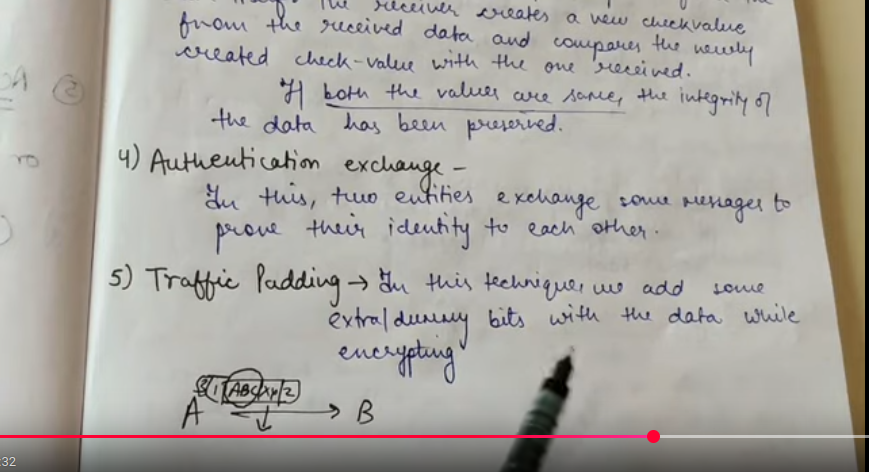 The receiver creates a new checkvalue
from the received data and compares the newly
created check-value with the one received.
If both the values are same, the integrity of
the data has been preserved.
4) Authentication exchange -
In this, two entities exchange some messages to
prove their identity to each other.
5) Traffic Padding → In this technique, we add some
extra/dummy bits with the data while
encrypting
ABC
A → B
:32